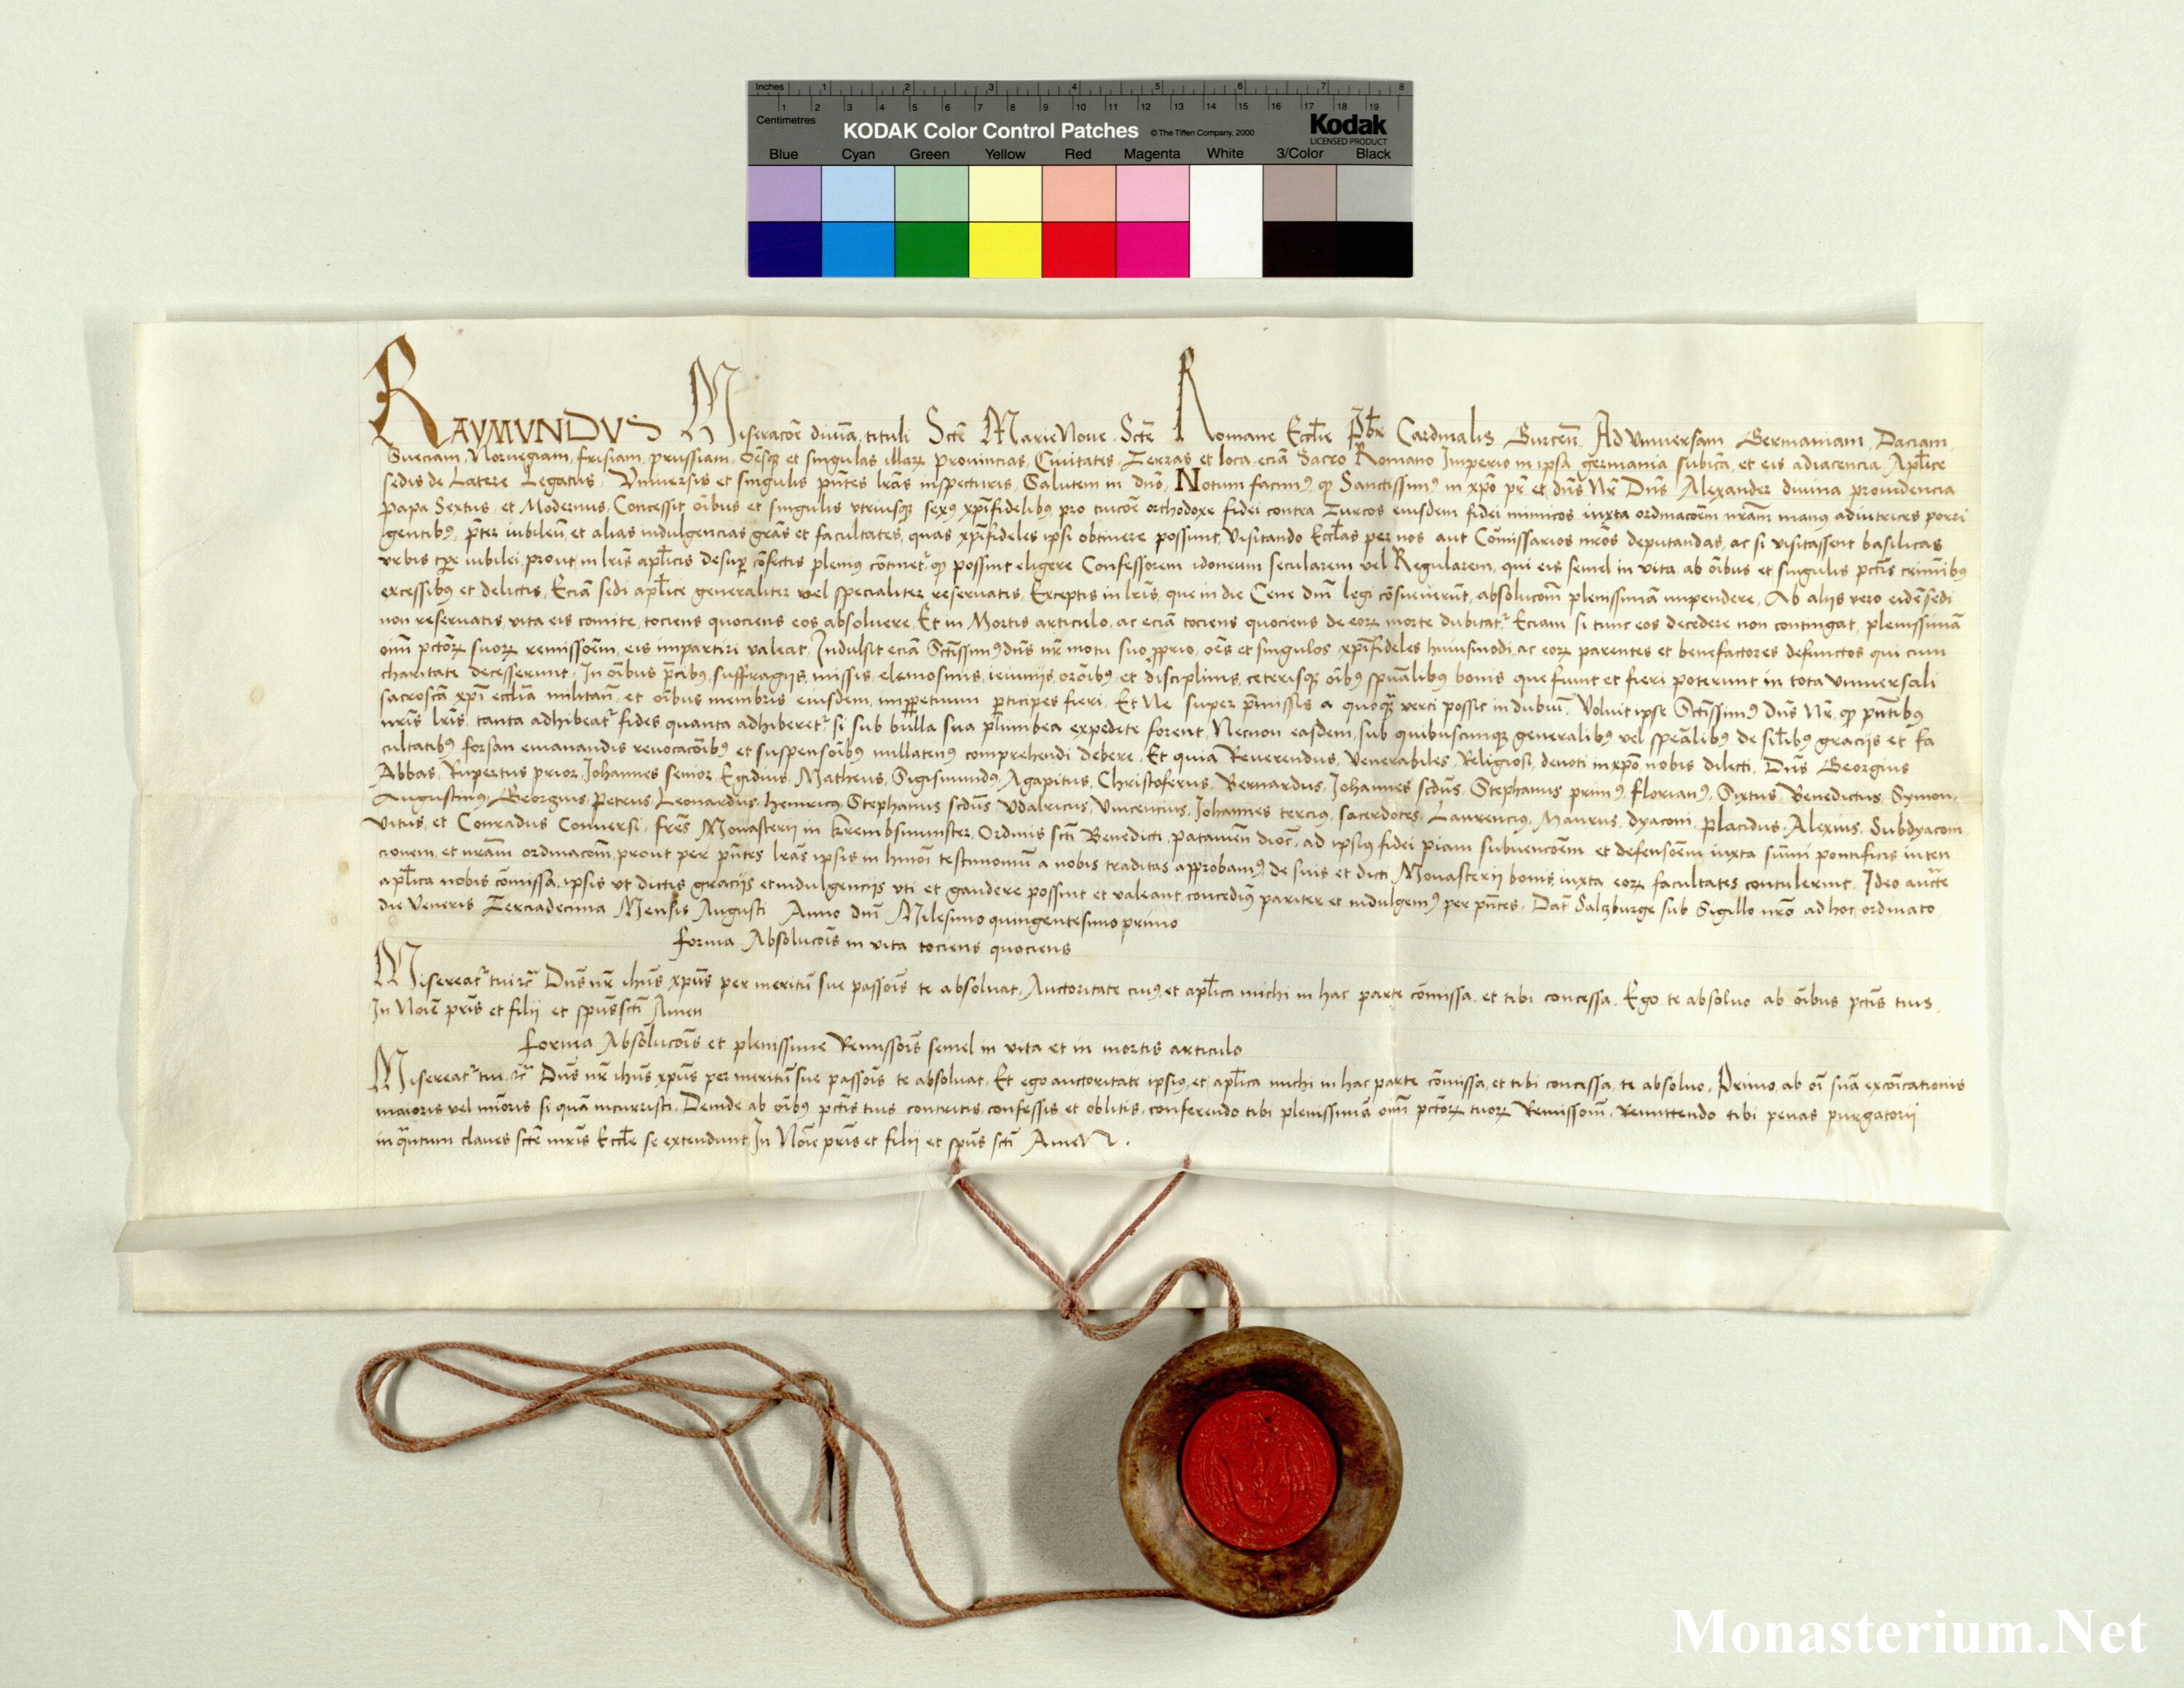 Inches 1 2 3 4 5 6 7 8
1 2 3 4 5 6 7 8 9 10 11 12 13 14 15 16 17 18 19
Centimetres
KODAK Color Control Patches © The Tiffen Company, 2000 Kodak
LICENSED PRODUCT
Blue Cyan Green Yellow Red Magenta White 3/Color Black
RAYMVNDVS Miseracōe diuīa tituli Scte Marie Noue Scte Romane Eccłie Pbr Cardinalis Gurceñ Ad Vniuersam Germaniam, Daciam,
Sueciam, Noruegiam, frisiam, prussiam, oēsq et singulas illaꝝ prouincias, Ciuitates, Terras et loca, eciā Sacro Romano Imperio in ipsa germania subiecta, et eis adiacencia Apłice
sedis de Latere Legatus, Vniuersis et singulis pñtes lrās inspecturis, Salutem in dño, Notum facimꝰ, ꝙ Sanctissimꝰ in xpō pr̄ et dñs Nr̄ Dñs Alexander diuina prouidencia
Papa Sextus, et Modernus, Concessit oībus et singulis vtriusqꝫ sexꝰ xpīfidelibꝰ pro tuicōe orthodoxe fidei contra Turcos eiusdem fidei inimicos iuxta ordinacōem nrām manꝰ adiutrices porri
gentibꝰ, pr̄ter iubileū, et alias indulgencias grās et facultates, quas xpīfideles ipsi obtinere possunt, Visitando Eccłas per nos aut Cōmissarios nrōs deputandas, ac si visitassent basilicas
vrbis tpe iubilei, prout in lrīs apłicis desuꝑ cōfectis plenius cōtinet, ꝙ possint eligere Confessorem idoneum secularem vel Regularem, qui eis semel in vita ab oībus et singulis pctīs criminibꝰ
excessibꝰ et delictis, Eciā sedi apłice generaliter vel specialiter reseruatis, Exceptis in lrīs, que in die Cene dnī legi cōsueuerūt, absolucōm plenissimā impendere, Ab alijs vero eidē sedi
non reseruatis, vita eis comite, tociens quociens eos absoluere, Et in Mortis articulo, ac eciā tociens quociens de eorꝝ morte dubitatr, Eciam si tunc eos decedere non contingat, plenissimā
oīm pctōꝝ suorꝝ remissōem, eis impartiri valeat, Indulsit eciā Sctīssimꝰ dñs nr̄ motu suo ꝓprio, oēs et singulos xpīfideles huiusmodi, ac eorꝝ parentes et benefactores defunctos qui cum
charitate decesserunt, In oībus p̄cibꝰ, suffragijs, missis, elemosinis, ieiunijs, orōibꝰ, et disciplinis, ceterisqꝫ oībꝰ spūalibꝰ bonis que fiunt et fieri poterunt in tota vniuersali
sacroscā xpī eccłia militañ, et oībus membris eiusdem, imꝑpetuum ꝑticipes fieri, Et Ne super p̄missis a quoqꝫ verti possit in dubiū, Voluit ipse Sctīssimꝰ Dñs Nr̄, ꝙ pñtibꝰ
nrīs lrīs, tanta adhibeatr fides quanta adhiberetr, si sub bulla sua plumbea expedite forent, Necnon easdem, sub quibuscunqꝫ generalibꝰ vel spēalibꝰ de siłibꝰ gracijs et fa
cultatibꝰ forsan emanandis reuocacōibꝰ et suspensōibꝰ nullatenꝰ comprehendi debere, Et quia Reuerendus, Venerabiles, Religiosi, deuoti in xpō, nobis dilecti, Dñs Georgius
Abbas, Rupertus prior, Johannes senior, Egidius, Matheus, Sigismundꝰ, Agapitus, Christoferus, Bernardus, Johannes scdūs, Stephanus primꝰ, florianꝰ, Sixtus, Benedictus, Symon,
Augustinꝰ, Georgius, Petrus, Leonardus, heinricꝰ, Stephanus scdūs, Vdalricus, Vincencius, Johannes tercius, sacerdotes, Laurencius, Maurus, dyaconi, placidus, Alexius, Subdyaconi
Vitus, et Conradus Conuersi, frēs Monasterij in krembsminster, Ordinis sctī Benedicti, patauieñ dioc, ad ipsiꝰ fidei piam subuencōem et defensōem iuxta sūmi pontificis inten
cionem, et nrām ordinacōm, prout per pñtes lrās ipsis in hmōi testimoniū a nobis traditas approbamꝰ, de suis et dicti Monasterij bonis, iuxta eorꝝ facultates contulerint, Ideo aucte
apłica nobis cōmissa, ipsis vt dictis gracijs et indulgencijs vti et gaudere possint et valeant, concedimꝰ pariter et indulgemꝰ per pñtes, Dat Salzburge sub Sigillo nrō ad hoc ordinato
die Veneris Terciadecima Mensis Augusti Anno dnī Milesimo quingentesimo primo
forma Absolucōis in vita tociens quociens
Misereatr tui ꝛc Dñs nr̄ ihūs xpūs per meritū sue passiōis te absoluat, Auctoritate cuiꝰ, et apłica michi in hac parte cōmissa, et tibi concessa, Ego te absoluo ab oībus pctīs tuis,
In Noīe prīs et filij et spūs sctī Amen
forma Absolucōis et plenissime Remissōis semel in vita et in mortis articulo
Misereatr tui ꝛc Dñs nr̄ ihūs xpūs per meritū sue passiōis te absoluat, Et ego auctoritate ipsiꝰ, et apłica michi in hac parte cōmissa, et tibi concessa, te absoluo, Primo, ab oī snīa excōicationis
maioris vel mīoris si quā incurristi, Deinde ab oībꝰ pctīs tuis contritis, confessis et oblitis, conferendo tibi plenissimā oīm pctōꝝ tuorꝝ Remissiōm, remittendo tibi penas purgatorij
inquantum claues scte mrīs Eccłe se extendunt, In Noīe prīs et filij et spūs sctī Amen.
Monasterium.Net